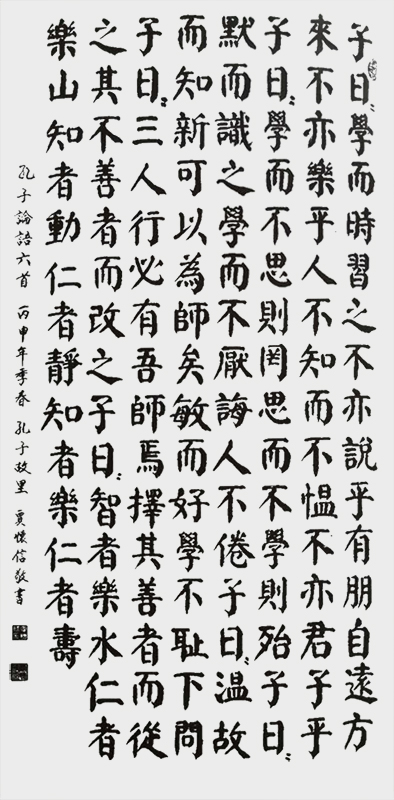 子曰學而時習之不亦說乎有朋自遠方
來不亦樂乎人不知而不愠不亦君子乎
子曰學而不思則罔思而不學則殆子曰
默而識之學而不厭誨人不倦子曰溫故
而知新可以為師矣敏而好學不耻下問
子曰三人行必有吾師焉擇其善者而從
之其不善者而改之子曰智者樂水仁者
樂山知者動仁者靜知者樂仁者壽
孔子論語六首 丙申年季春 孔子故里 賈懷信敬書